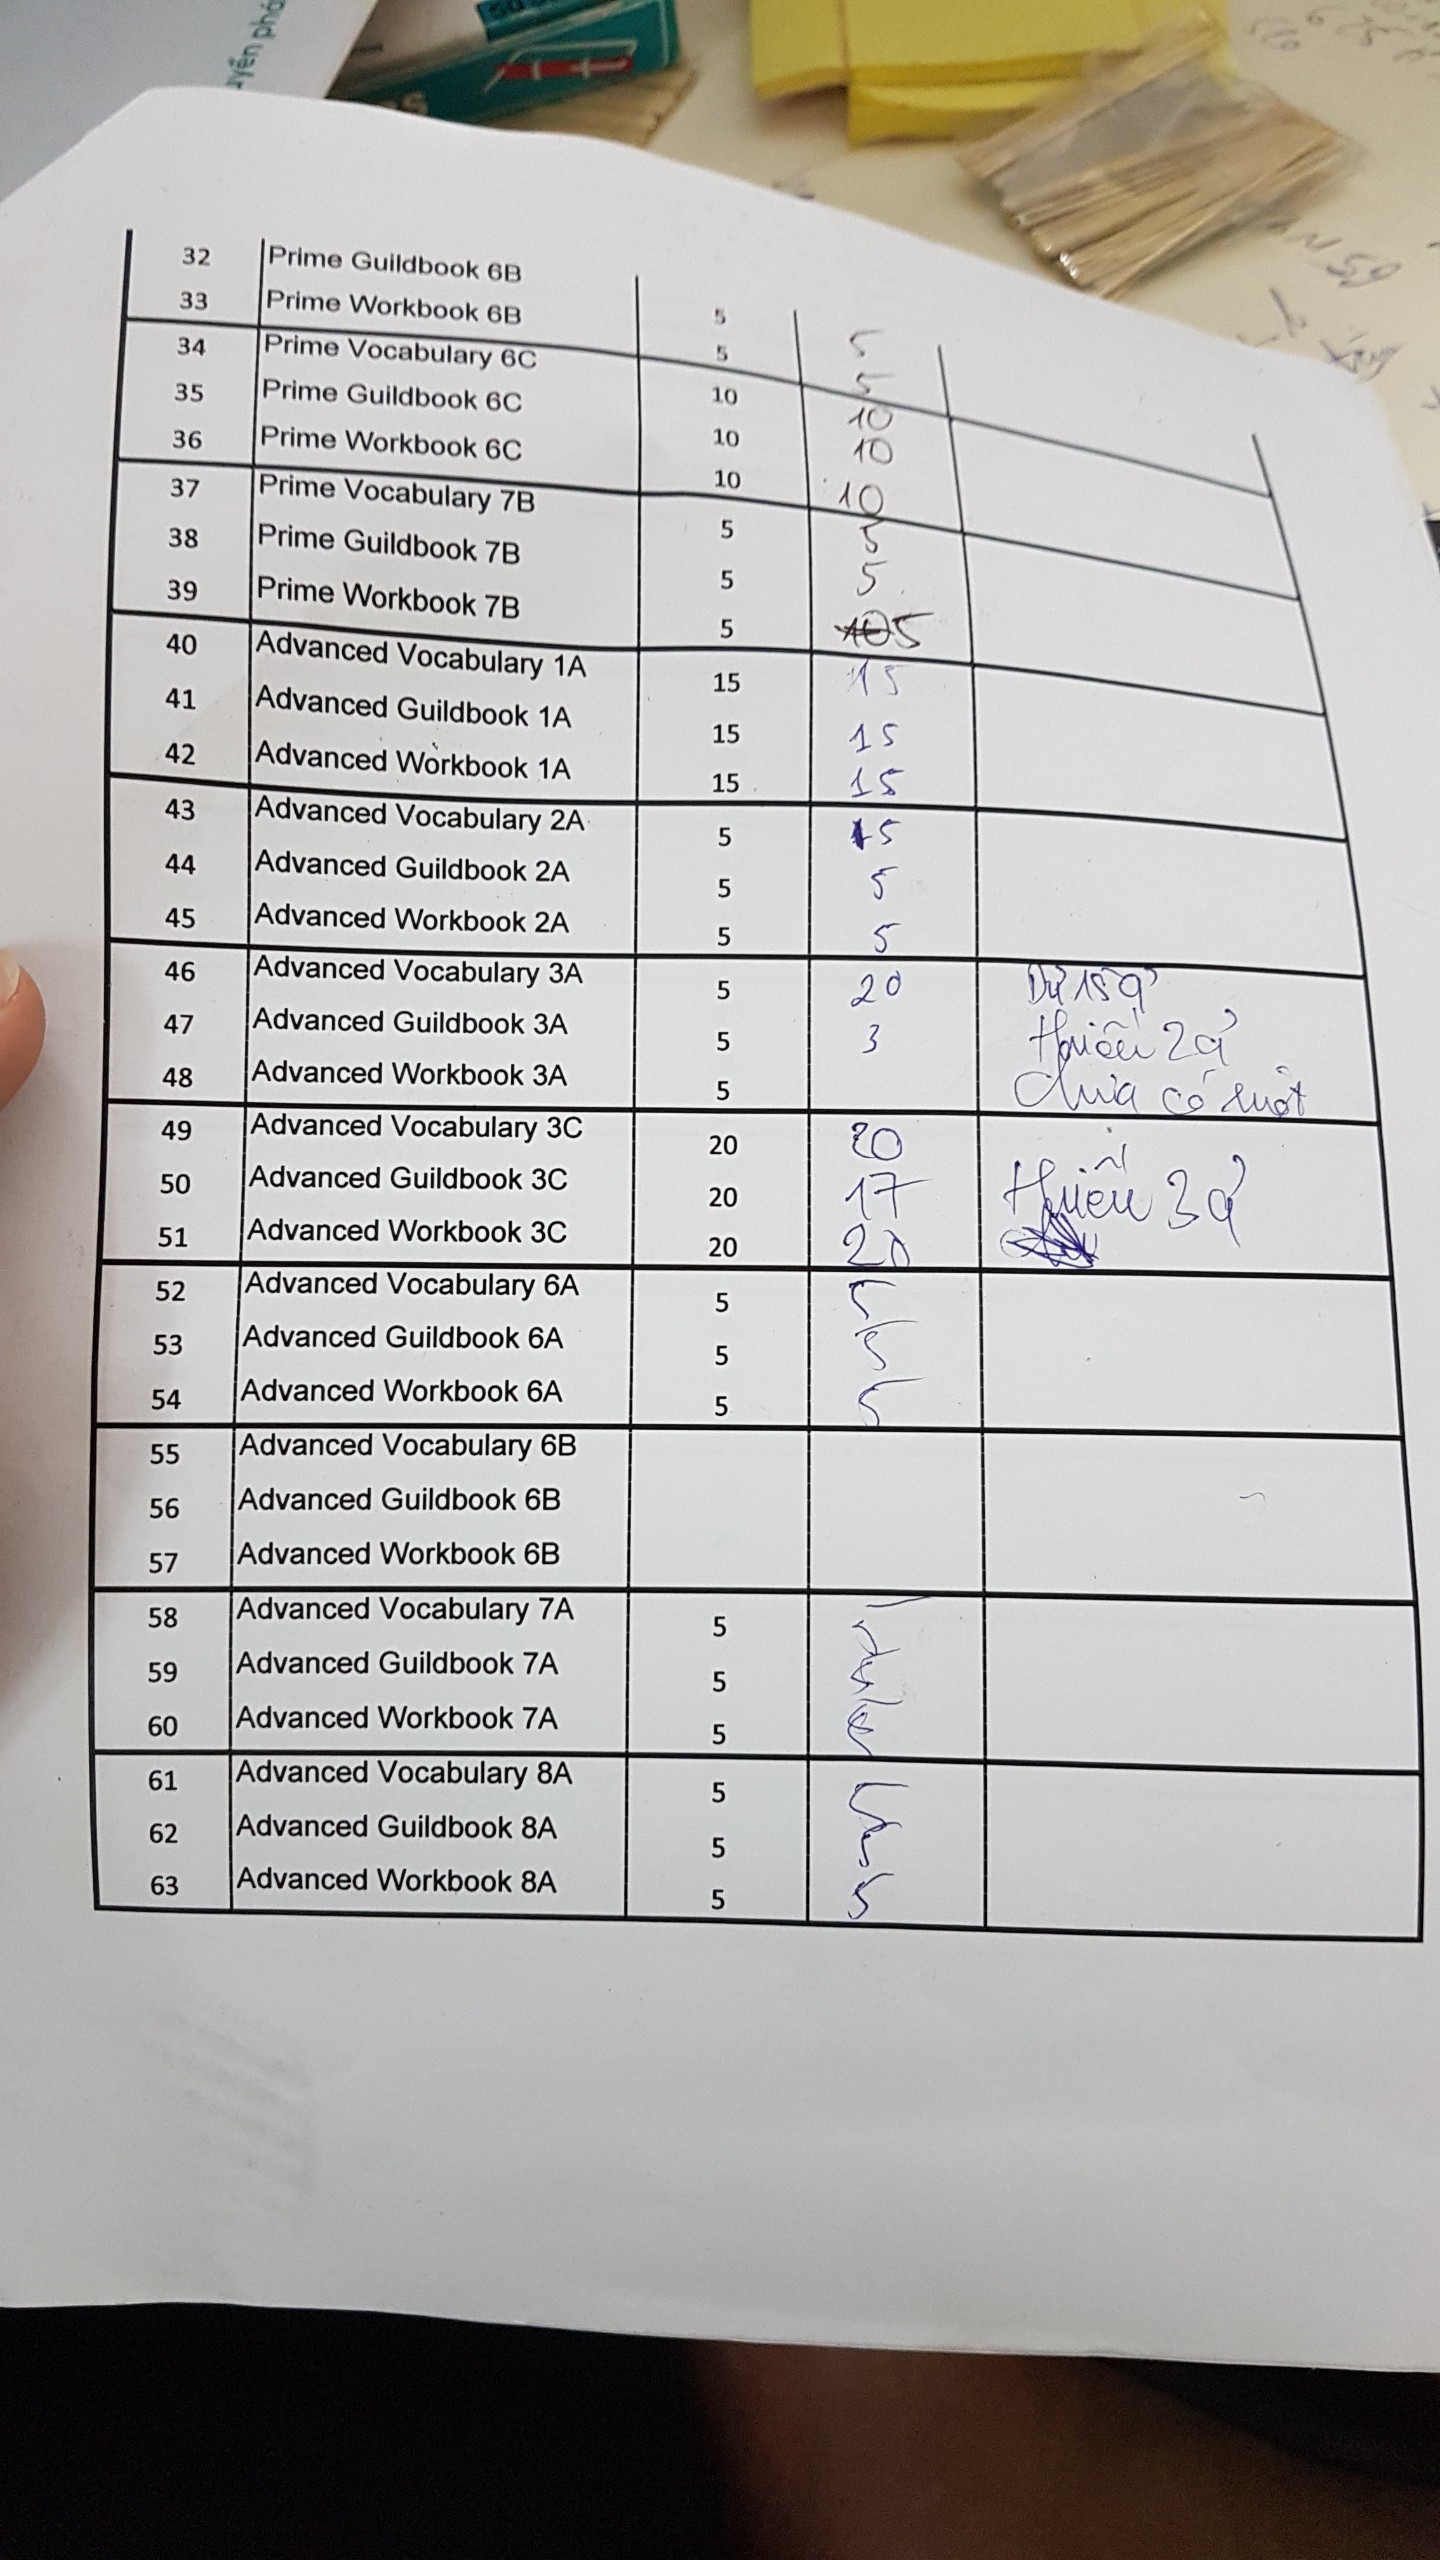 uyển phá
50
32 Prime Guildbook 6B 5 5
33 Prime Workbook 6B 5 5
34 Prime Vocabulary 6C 10 10
35 Prime Guildbook 6C 10 10
36 Prime Workbook 6C 10 10
37 Prime Vocabulary 7B 5 5
38 Prime Guildbook 7B 5 5
39 Prime Workbook 7B 5 5
40 Advanced Vocabulary 1A 15 15
41 Advanced Guildbook 1A 15 15
42 Advanced Workbook 1A 15 15
43 Advanced Vocabulary 2A 5 5
44 Advanced Guildbook 2A 5 5
45 Advanced Workbook 2A 5 5
46 Advanced Vocabulary 3A 5 20 Dư 15q'
47 Advanced Guildbook 3A 5 3 Thiếu 2q'
48 Advanced Workbook 3A 5 Chưa có ruột
49 Advanced Vocabulary 3C 20 20
50 Advanced Guildbook 3C 20 17 Thiếu 3q'
51 Advanced Workbook 3C 20 20
52 Advanced Vocabulary 6A 5 5
53 Advanced Guildbook 6A 5 5
54 Advanced Workbook 6A 5 5
55 Advanced Vocabulary 6B
56 Advanced Guildbook 6B
57 Advanced Workbook 6B
58 Advanced Vocabulary 7A 5 5
59 Advanced Guildbook 7A 5 5
60 Advanced Workbook 7A 5 5
61 Advanced Vocabulary 8A 5 5
62 Advanced Guildbook 8A 5 5
63 Advanced Workbook 8A 5 5